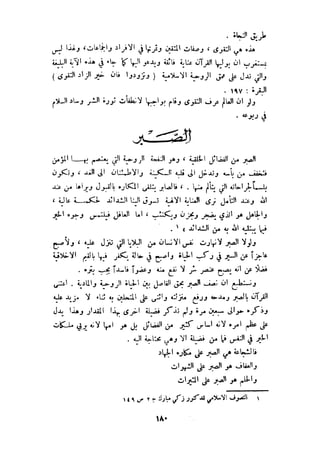 طريق النجاة .
هذه هي التقوى ، وصفات المتقين وثمرتها في الافراد والجماعات ، ولهذا ليس
بمستغرب ان يولي القرآن عناية فائقة ويدعو اليها كما جاء في هذه الآية البليغة
والتي تدل على عمق الروحية الاسلامية ( وتزودوا فان خير الزاد التقوى )
البقرة : ١٩٧ .
ولو ان العالم عرف التقوى وقام بواجبها لانطفأت ثورة الشر وساد السلام
في ربوعه .
الصبر
الصبر من الفضائل الخلقية ، وهو النفحة الروحية التي يعتصم بها المؤمن
فتخفف من بأسه وتدخل الى قلبه السكينة والاطمئنان الى العدل ، وتكون
بلسماً لجراحاته التي يتألم منها . ، فالصابر يتلقى المكاره بالقبول ويراها من عند
الله وعند التأمل نرى العناية الالهية تسوق الينا الشدائد لحكمة عالية ،
والجاهل هو الذي يضجر ويحزن ويكتئب ، اما العاقل فيلتمس وجوه الخير
فيما يبتليه الله به من الشدائد ١ .
ولولا الصبر لانهارت نفس الانسان من البلايا التي تنزل عليه ، ولأصبح
عاجزاً عن السير في ركب الحياة واصبح في حالة يكفر فيها بالقيم الاخلاقية
فضلاً عن انه يصبح عنصر شر لا نفع منه وعضواً فاسداً يجب بتره .
ونستطيع ان نصف الصبر بحق الفاصل بين الحياة الروحية والمادية . اعتنى
القرآن بالصبر ومدحه ورفع منزلته واثنى على المتحلين به ثناء لا مزيد عليه
وذكره حوالي سبعين مرة ولم يذكر فضيلة اخرى بهذا المقدار وهذا يدل
على عظم امره لانه اساس كثير من الفضائل بل هو امها لانه يربي ملكات
الخير في النفس فما من فضيلة الا وهي محتاجة اليه .
فالشجاعة هي الصبر على مكاره الجهاد
والعفاف هي الصبر على الشهوات
والحلم هو الصبر على المثيرات
١ التصوف الاسلامي للدكتور زكي مبارك ج ٢ ص ١٤٩
١٨٠